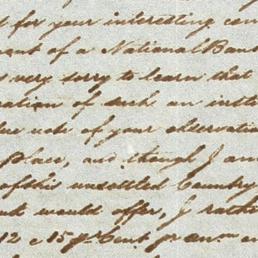 for your interesting com
ment of a National Ban
very sorry to learn that
ation of such an inst
note of your observation
place, and though I am
of this unsettled Country
would offer, I rath
12 a 15 p. Cent pr. anm.